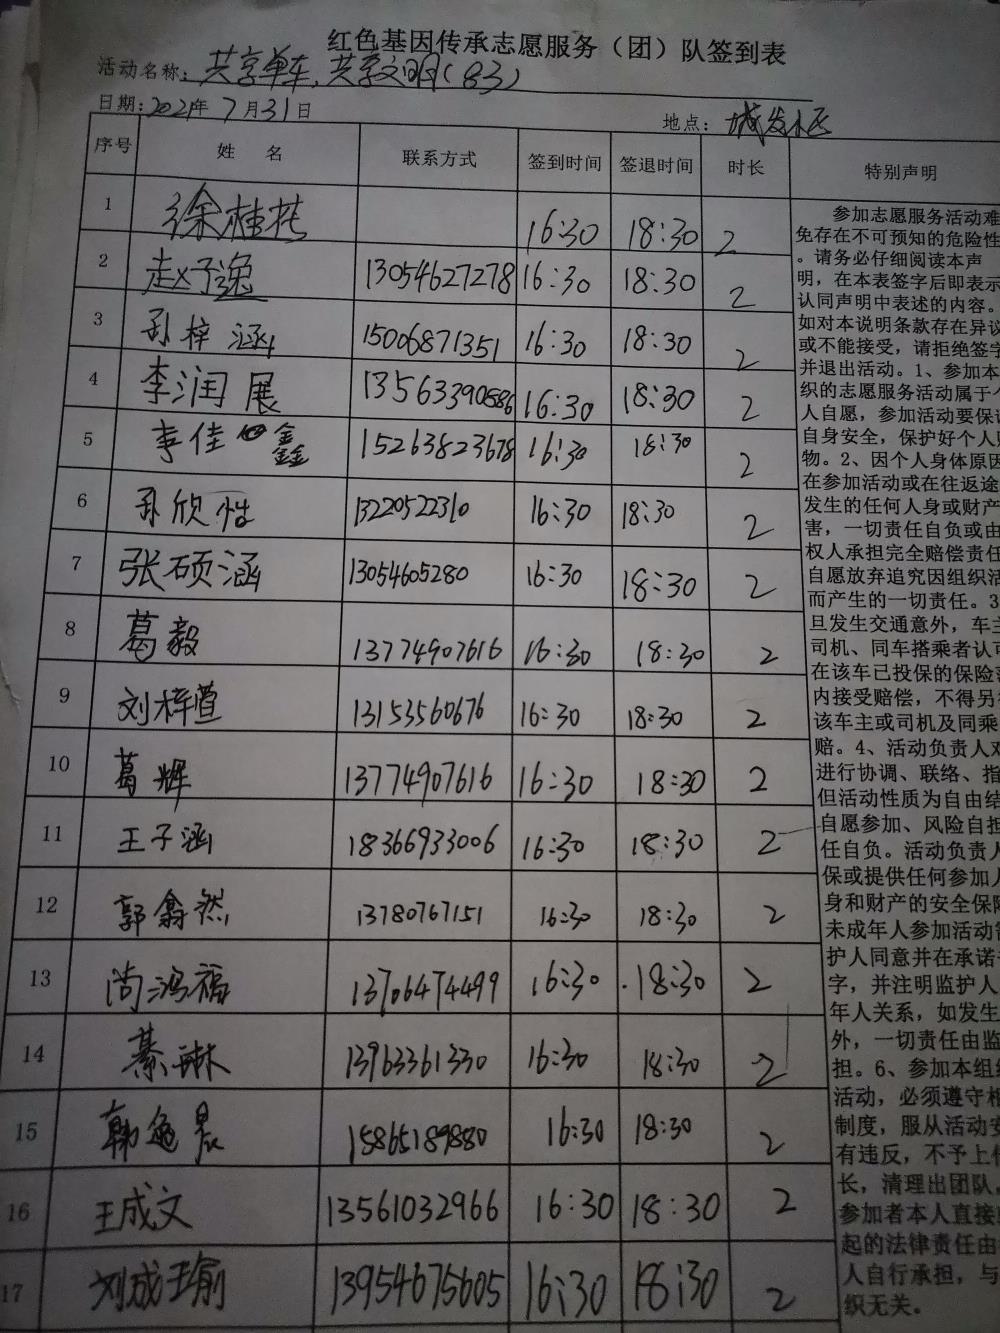 红色基因传承志愿服务（团）队签到表
活动名称：共享单车，共享文明（83）
日期：2021年7月31日 地点：城发小区
序号 姓 名 联系方式 签到时间 签退时间 时长 特别声明
1 徐桂花 16:30 18:30 2
2 赵子逸 13054627278 16:30 18:30 2
3 孙梓涵 15006871351 16:30 18:30 2
4 李润展 13563390586 16:30 18:30 2
5 李佳鑫 15263823678 16:30 18:30 2
6 孙欣怡 13220522310 16:30 18:30 2
7 张硕涵 13054605280 16:30 18:30 2
8 葛毅 13774907616 16:30 18:30 2
9 刘梓萱 13153560676 16:30 18:30 2
10 葛辉 13774907616 16:30 18:30 2
11 王子涵 18366933006 16:30 18:30 2
12 郭翕然 13780767151 16:30 18:30 2
13 尚鸿福 13706474499 16:30 18:30 2
14 綦琳 13963361330 16:30 18:30 2
15 韩逸晨 15865189880 16:30 18:30 2
16 王成文 13561032966 16:30 18:30 2
17 刘成瑜 13954675605 16:30 18:30 2
参加志愿服务活动难
免存在不可预知的危险性
。请务必仔细阅读本声
明，在本表签字后即表示
认同声明中表述的内容。
如对本说明条款存在异议
或不能接受，请拒绝签字
并退出活动。1、参加本
织的志愿服务活动属于个
人自愿，参加活动要保证
自身安全，保护好个人财
物。2、因个人身体原因
在参加活动或在往返途
发生的任何人身或财产
害，一切责任自负或由
权人承担完全赔偿责任
自愿放弃追究因组织活
而产生的一切责任。3
旦发生交通意外，车主
司机、同车搭乘者认可
在该车已投保的保险范
内接受赔偿，不得另行
该车主或司机及同乘
赔。4、活动负责人对
进行协调、联络、指
但活动性质为自由结
自愿参加、风险自担
任自负。活动负责人
保或提供任何参加人
身和财产的安全保险
未成年人参加活动需
护人同意并在承诺书
字，并注明监护人
年人关系，如发生
外，一切责任由监
担。6、参加本组织
活动，必须遵守相
制度，服从活动安
有违反，不予上传
长，清理出团队，
参加者本人直接
起的法律责任由
人自行承担，与
织无关。